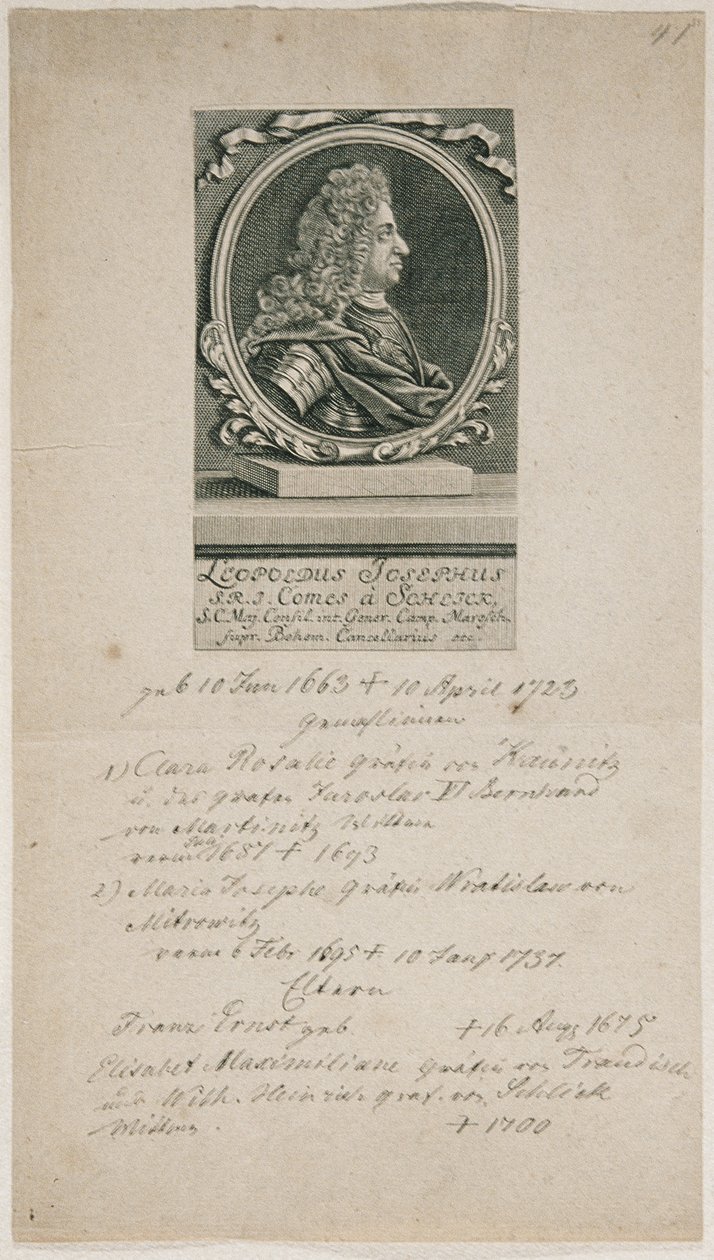 41
LEOPOLDUS JOSEPHUS
S.R.I. Comes à SCHLICK,
S.C.Maj. Consil. int. Gener. Camp. Maresch.
supr. Bohem. Cancellarius etc.
geb 10 Jun 1663 † 10 April 1723
Gemahlinnen
1) Clara Rosalie gräfin von Kaunitz
u. des grafen Jaroslav VI Bernhard
von Martinitz Wittwe
1687 † 1693
2) Maria Josephe gräfin Wratislaw von
Mitrowitz
verm 6 Febr 1695 † 10 1737.
Eltern
Franz Ernst geb. † 16 Aug 1675
Elisabet Maximiliane gräfin von
und With. Heinrich graf. von Schlick
Wittwe. † 1700